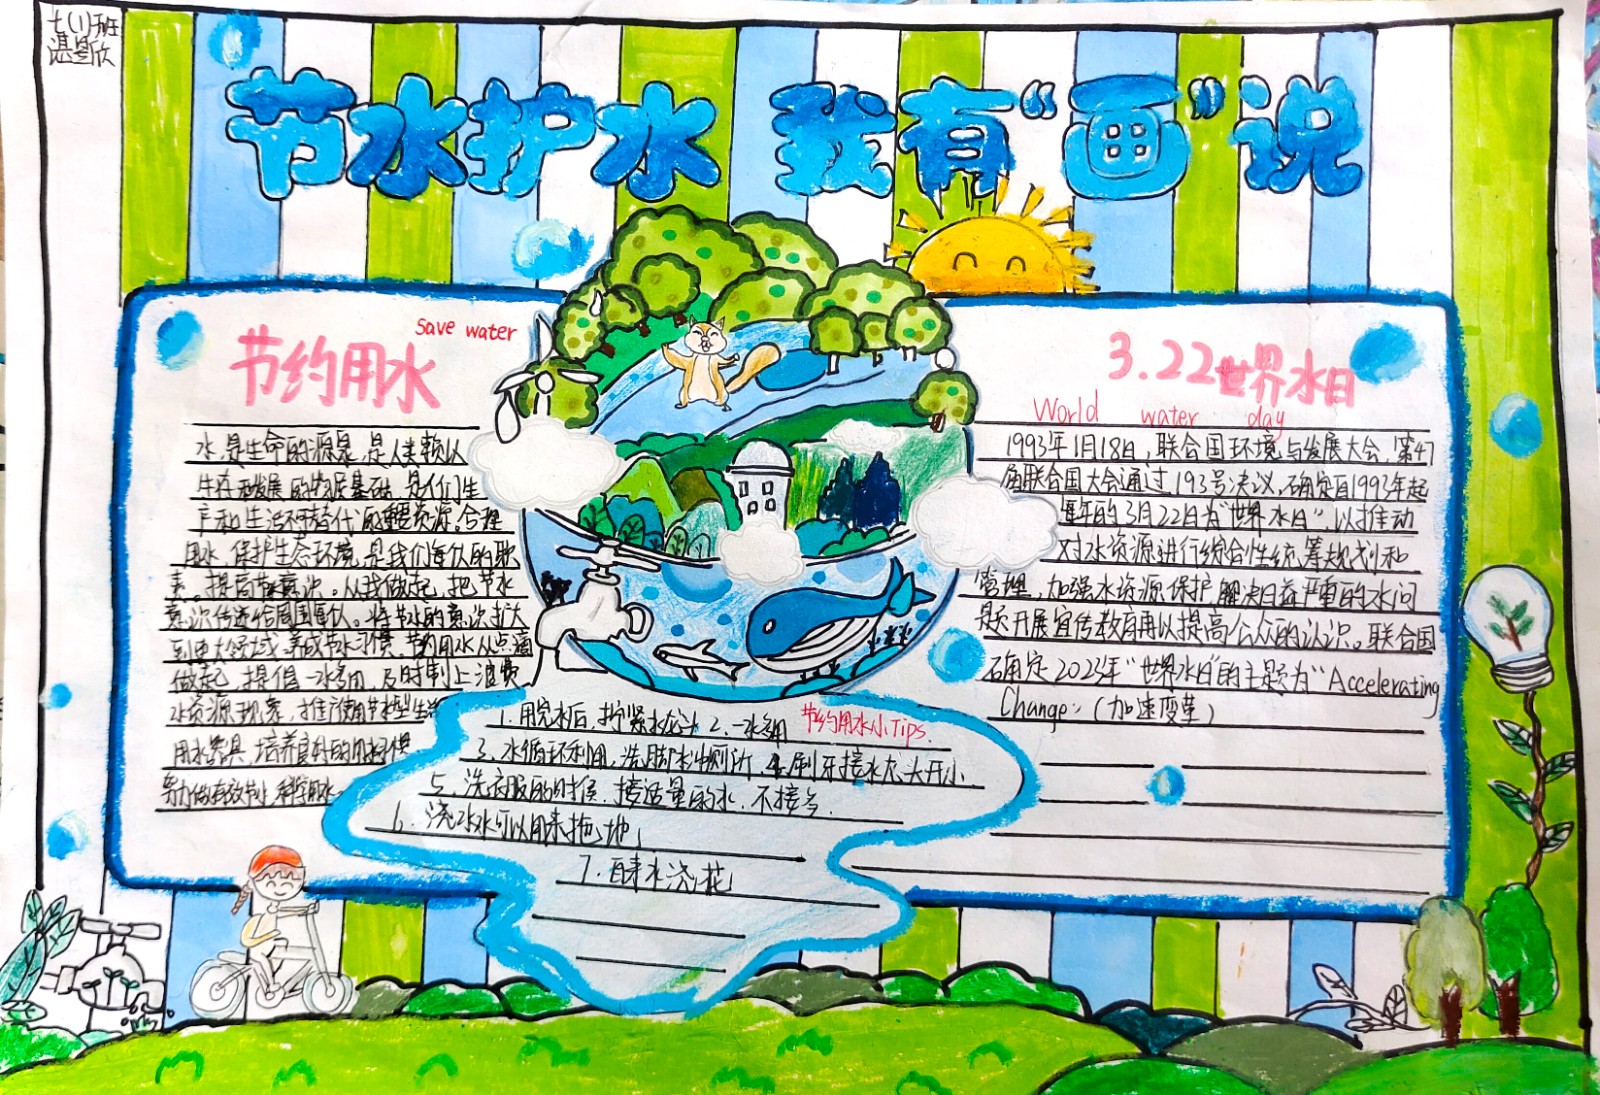 七(1)班
湛昱欣
节水护水 我有“画”说
Save water
节约用水
水,是生命的源泉,是人类赖以
生存和发展的物质基础,是人们生
产和生活不可替代的重要资源。合理
用水,保护生态环境,是我们每个人的职
责。提高节水意识。从我做起,把节水
意识传递给周围每个人。将节水的意识扩大
到更大领域,养成节水习惯,节约用水从点滴
做起,提倡一水多用,及时制止浪费
水资源现象,推广使用节水型生活
用水器具,培养良好的用水习惯
努力做有效节水,科学用水
3.22世界水日
World water day
1993年1月18日,联合国环境与发展大会,第47
届联合国大会通过193号决议,确定自1993年起
每年的3月22日为“世界水日”,以推动
对水资源进行综合性统筹规划和
管理,加强水资源保护,解决日益严重的水问
题开展宣传教育再以提高公众的认识。联合国
确定2023年“世界水日”的主题为“Accelerating
Change”(加速变革)
节约用水小Tips.
1.用完水后,拧紧水龙头 2.一水多用
3.水循环利用,洗脚水冲厕所,4.刷牙接水,不大开小
5.洗衣服的时候,接适量的水,不接多.
6.浇冰水可以用来拖地
7.酵水浇花